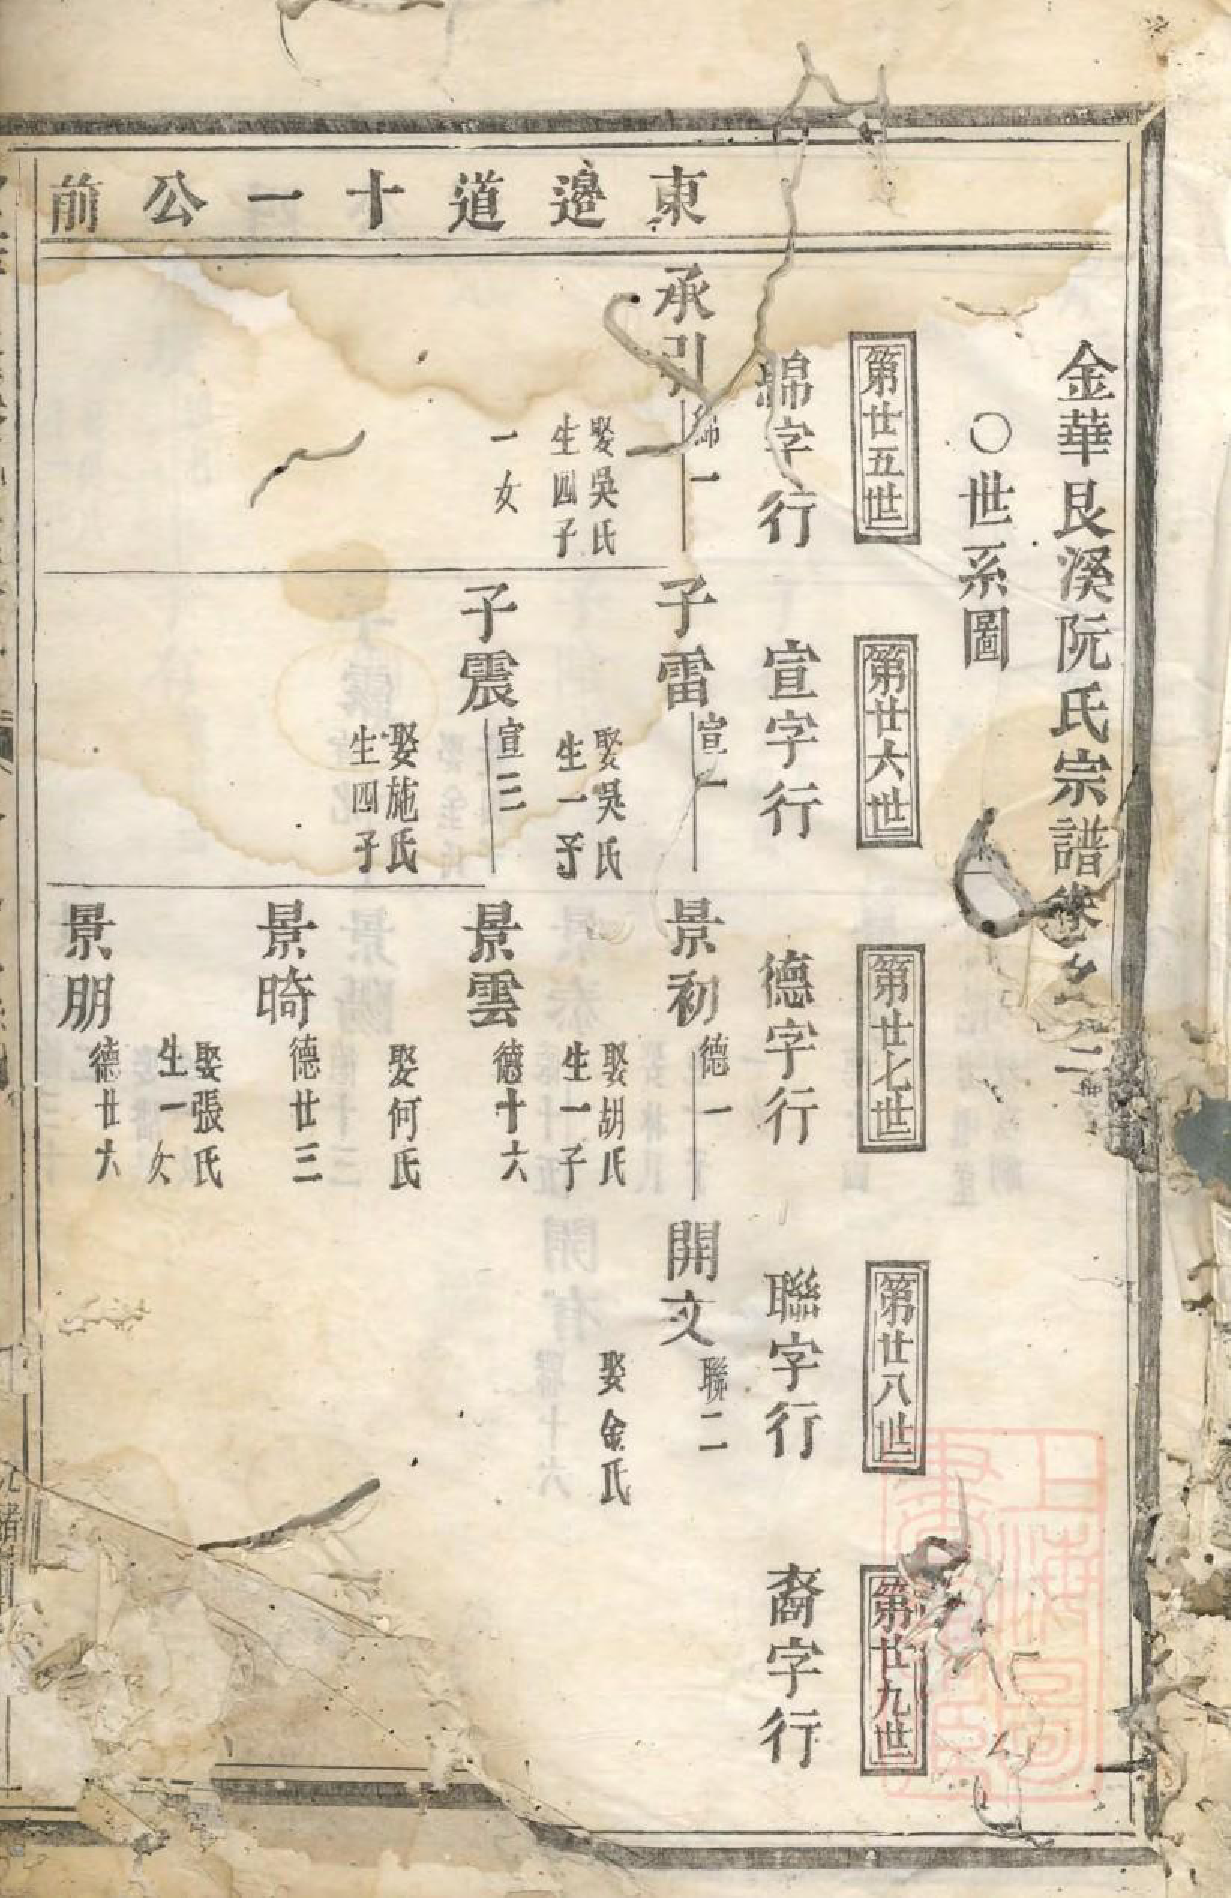 金華艮溪阮氏宗譜卷之
〇世系圖
第廿五世
綿字行
第廿六世
宣字行
第廿七世
德字行
第廿八世
聯字行
第廿九世
裔字行
東邊道十一公前
承引
綿一
娶吳氏
生四子
一女
子雷
宣一
娶吳氏
生一子
子震
宣三
娶施氏
生四子
景初
德一
娶胡氏
生一子
景雲
德十六
娶何氏
景暄
德廿三
娶張氏
生一女
景朋
德廿六
開文
聯二
娶金氏